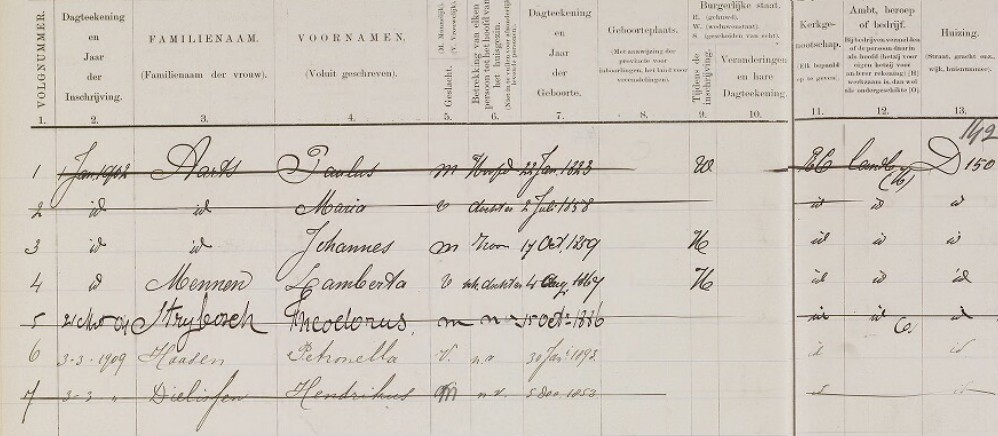 VOLGNUMMER.
Dagteekening en Jaar der Inschrijving.
FAMILIENAAM. (Familienaam der vrouw).
VOORNAMEN. (Voluit geschreven).
Geslacht. (M. Mannelijk). (V. Vrouwelijk).
Betrekking van elken persoon tot het hoofd van het huisgezin.
Dagteekening en Jaar der Geboorte.
Geboorteplaats. (Met aanwijzing der provincie voor
Burgerlijke staat.
R. (gehuwd).
W. (weduwestaat).
S. (gescheiden van echt).
Tijdens de inschrijving.
Veranderingen en hare Dagteekening.
Kerkgenootschap.
Ambt, beroep of bedrijf.
Huizing.
1. 2. 3. 4. 5. 6. 7. 8. 9. 10. 11. 12. 13.
142
1 1 Jan. 1902 Aarts Paulus m Hoofd 22 Jan. 1823 W RC landb D 150
2 id id Maria v dochter 2 Juli 1858 id id id
3 id id Johannes m zoon 17 Oct. 1859 H id id id
4 id Mennen Lamberta v sch. dochter 4 Aug. 1867 H id id id
5 Strijbosch Theodorus m 15 Oct. 1886 id id id
6 3-3-1909 Haasen Petronella v. 30 Jan. 1893 id id
7 3-3 " Dielissen Hendrikus m 5 Dec. 1853 id id